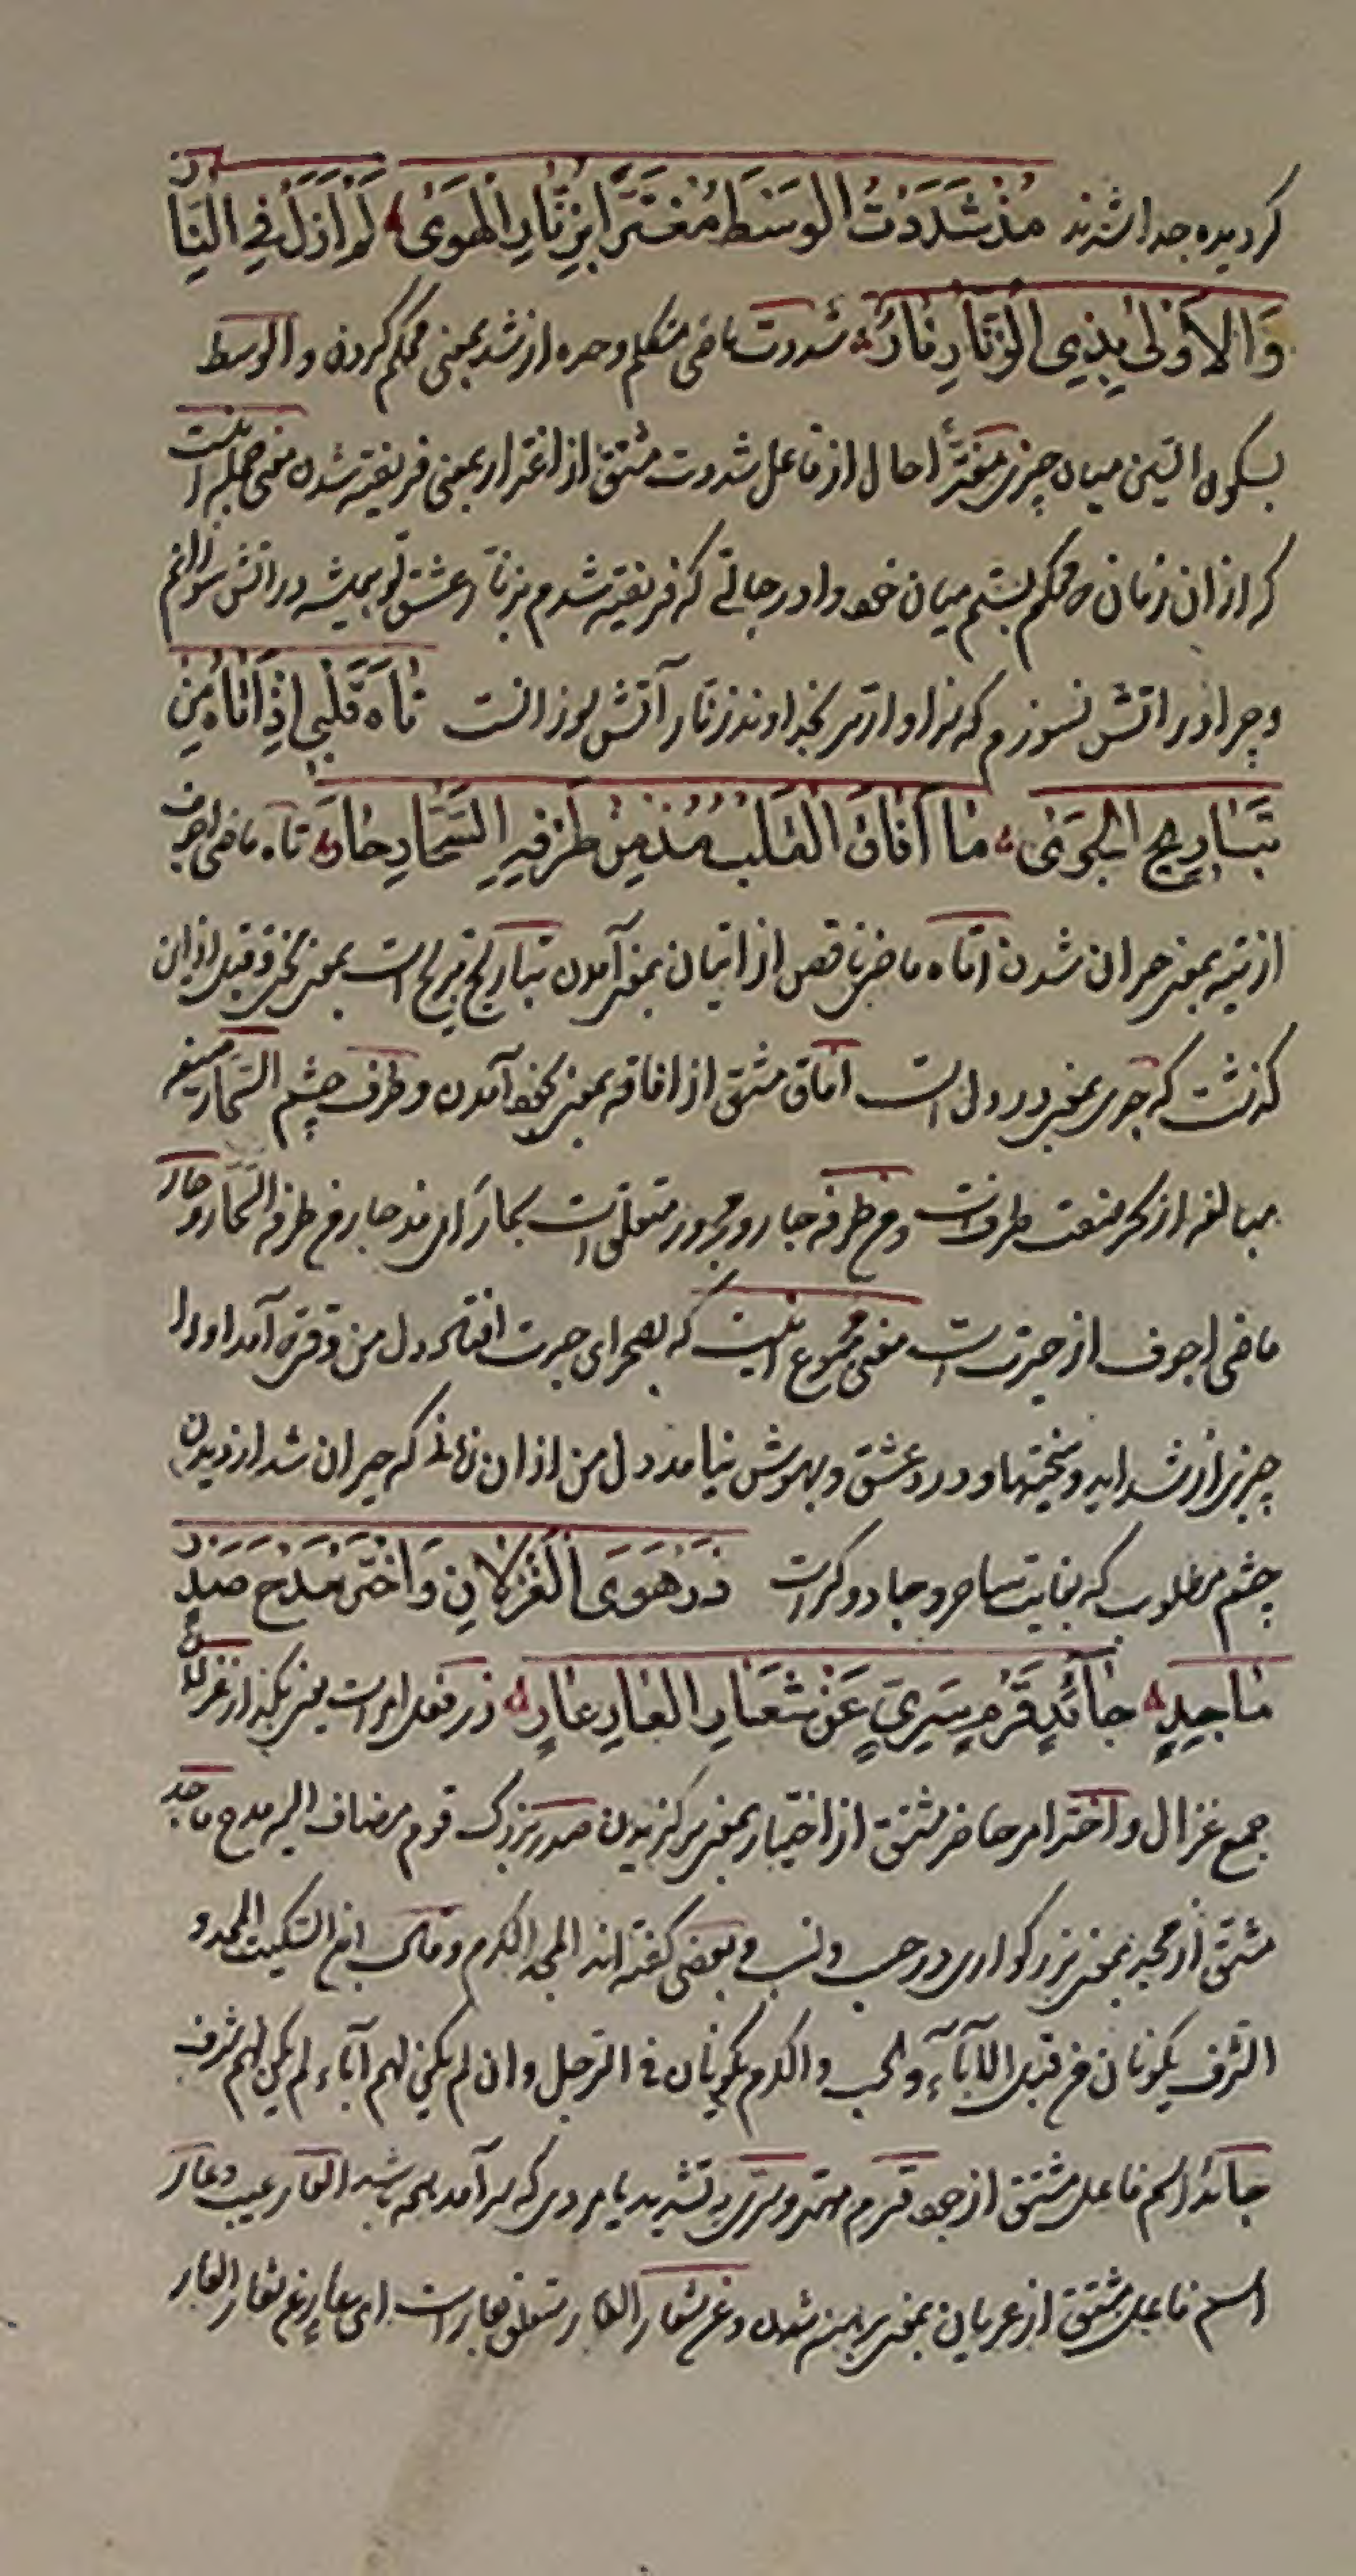 گردیده جدا شدند مُذْ شَدَدْتُ الْوَسْطَ مُغْتَرًّا بِزُنَّارِ الْهَوَىٰ لَمْ اَزَلْ فِی النَّارِ
وَالْاَوْلَىٰ بِذِی الزُّنَّارِ نَارٌ شددت ماضی متکلم وحده از شد بمعنی محکم کردن و الوسط
بسکون السین میان چیزی مغترّاً حال از فاعل شددت مشتق از اغترار بمعنی فریفته شدن معنی جمله اینست
که از ان زمان که محکم بستم میان خود را در حالتی که فریفته شدم بزنار عشق تو همیشه در اتش سوزانم
و چرا در اتش نسوزم که سزاوارتر بخداوند زنار آتش سوزانست تَاهَ قَلْبِی اِذْ اَتَاهُ مِنْ
تَبَارِیحِ الْجَوَىٰ مَا اَفَاقَ الْقَلْبُ مُذْ مِنْ طَرْفِهِ السَّحَّارِ حَارَ تاه ماضی اجوف
از تیه بمعنی حیران شدن اتاه ماضی ناقص از اتیان بمعنی آمدن تباریح تبریح است بمعنی و قبل از این
گذشت که جوی بمعنی درد دل است افاق مشتق از افاقه بمعنی بخود آمدن و طرف چشم السحار صیغه
مبالغه از سحر صفت طرفست و من طرفه جار و مجرور متعلق است بحار ای مذ حار من طرفه السحار و حار
ماضی اجوف از حیرت است معنی مجموع اینست که بصحرای حیرت افتاد دل من وقتی که آمد او را
چیزی از شداید و سختیها و درد عشق و بهوش نیامد دل من از ان زمان که حیران شد از دیدن
چشم مطلوب که بغایت ساحر و جادوگر است ذَرْ هَوَى الْغِزْلَانِ وَاخْتَرْ مَدْحَ صَدْرٍ
مَاجِدٍ جَائِدٍ قَرْمٍ سَرِیٍّ عَنْ شَعَارِ الْعَارِ عَارٍ ذر فعل امر است یعنی بگذار غزلان
جمع غزال و اختر امر حاضر مشتق از اختیار بمعنی برگزیدن صدر بزرک قوم مضاف الیه مدح ماجد
مشتق از مجد بمعنی بزرگواری در حسب و نسب و بعضی گفته اند المجد الکرم و قال ابن السکیت المجد و
الشرف یکونان من قبل الآباء و الحسب و الکرم یکونان فی الرجل و ان لم یکن لهم آباء لم یکن لهم شرف
جائد اسم فاعل مشتق از جود قرم مهتر و سری به تشدید یا مردی که سرآمد همه باشد العار عیب و عار
اسم فاعل مشتق از عریان بمعنی برهنه شدن و عن شعار العار متعلق بعار است ای عار من شعار العار